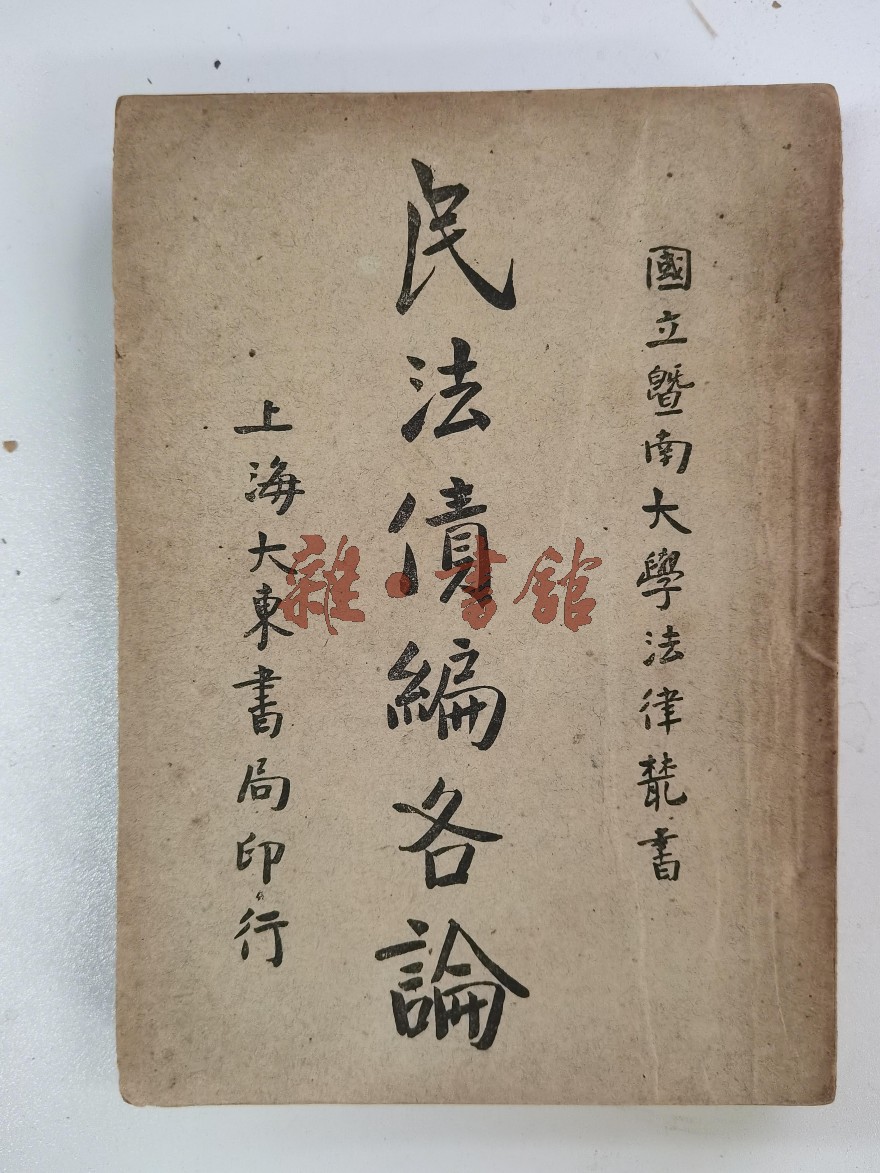 國立暨南大學法律叢書
民法債編各論
上海大東書局印行
雜·書館